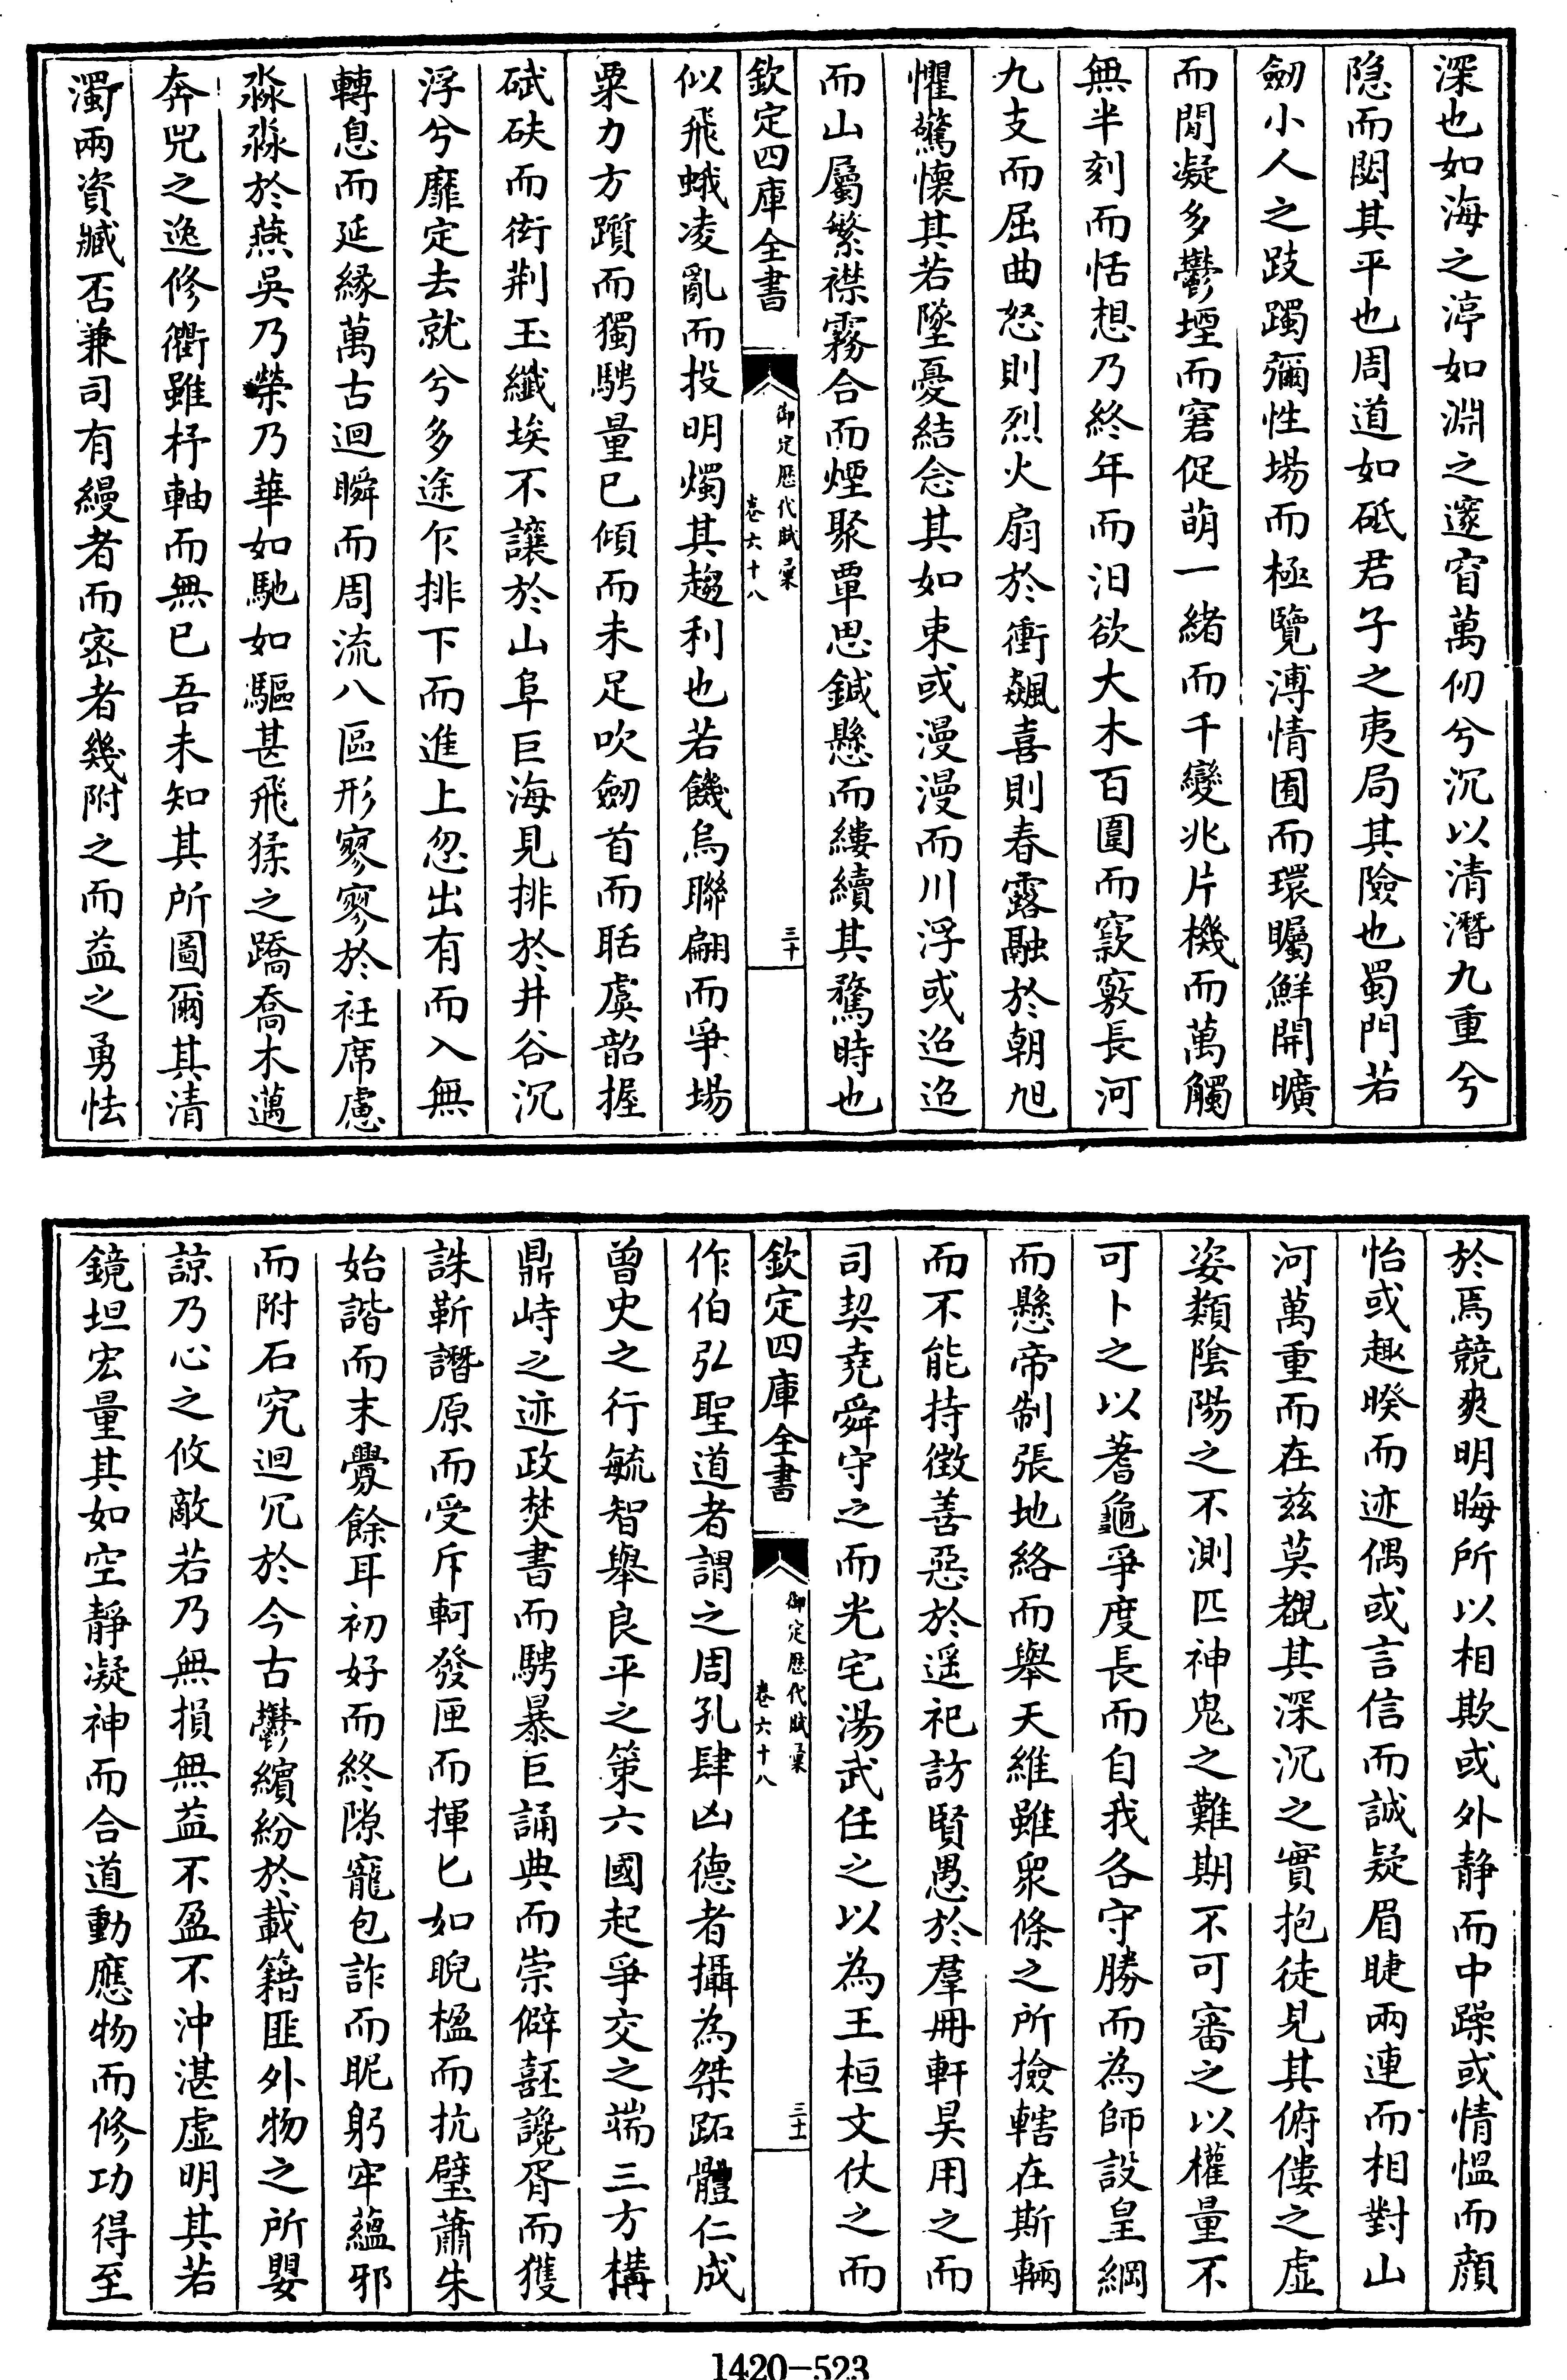 深也如海之渟如淵之邃窅萬仞兮沉以清潛九重兮
隐而閟其平也周道如砥君子之夷局其險也蜀門若
劒小人之跂躅彌性場而極覽溥情囿而環矚鮮開曠
而閒凝多鬱堙而窘促萌一緒而千變兆片機而萬觸
無半刻而恬想乃終年而汨欲大木百圍而窾竅長河
九支而屈曲怒則烈火扇於衝飆喜則春露融於朝旭
懼驚懷其若墜憂結念其如束或漫漫而川浮或迢迢
而山屬繁襟霧合而煙聚覃思鍼懸而縷續其騖時也
欽定四庫全書
御定歷代賦彙
卷六十八
三十
似飛蛾凌亂而投明燭其趨利也若饑烏聯翩而爭場
粟力方躓而獨騁量已傾而未足吹劒首而聒虞韶握
碔砆而衒荆玉纖埃不讓於山阜巨海見排於井谷沉
浮兮靡定去就兮多途乍排下而進上忽出有而入無
轉息而延緣萬古迴瞬而周流八區形寥寥於衽席慮
淼淼於燕吳乃榮乃華如馳如驅甚飛猱之蹻喬木邁
奔兕之逸修衢雖杼軸而無已吾未知其所圖爾其清
濁兩資臧否兼司有縵者而宻者幾附之而益之勇怯
於焉競爽明晦所以相欺或外静而中躁或情愠而顔
怡或趣暌而迹偶或言信而誠疑眉睫兩連而相對山
河萬重而在兹莫覩其深沉之實抱徒見其俯僂之虛
姿類陰陽之不測匹神鬼之難期不可審之以權量不
可卜之以蓍龜爭度長而自我各守勝而為師設皇綱
而懸帝制張地絡而舉天維雖衆條之所撿轄在斯輛
而不能持徵善惡於遥祀訪賢愚於羣冊軒昊用之而
司契堯舜守之而光宅湯武任之以為王桓文仗之而
欽定四庫全書
御定歷代賦彙
卷六十八
三十一
作伯弘聖道者謂之周孔肆凶德者攝為桀跖體仁成
曽史之行毓智舉良平之策六國起爭交之端三方構
鼎峙之迹政焚書而騁暴巨誦典而崇僻嚭讒胥而獲
誅靳譖原而受斥軻發匣而揮匕如睨楹而抗璧蕭朱
始諧而末釁餘耳初好而終隙寵包詐而昵躬牢蘊邪
而附石究迴冗於今古鬱繽紛於載籍匪外物之所嬰
諒乃心之攸敵若乃無損無益不盈不沖湛虛明其若
鏡坦宏量其如空靜凝神而合道動應物而修功得至
1420-523